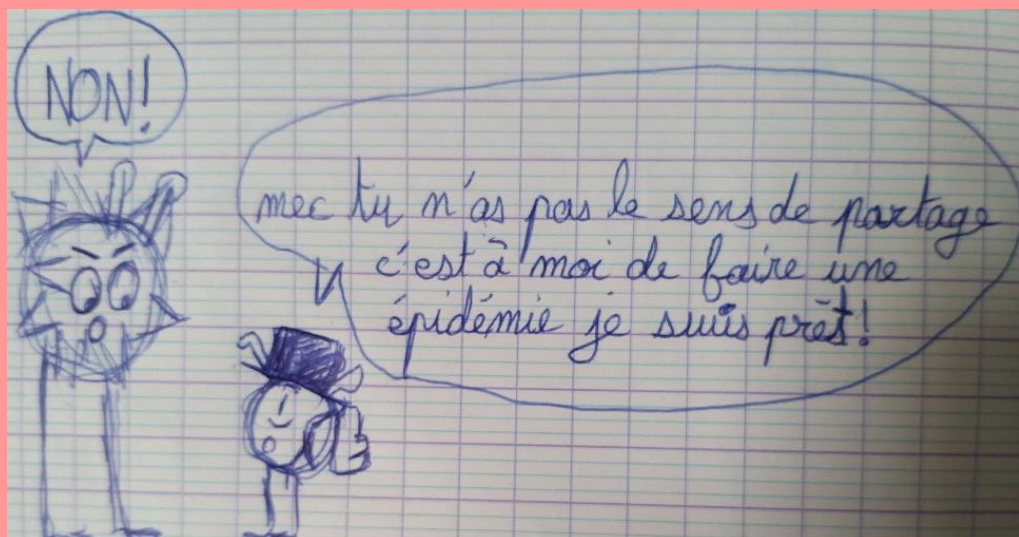 NON!
mec tu n'as pas le sens de partage
c'est à moi de faire une
épidémie je suis prêt!